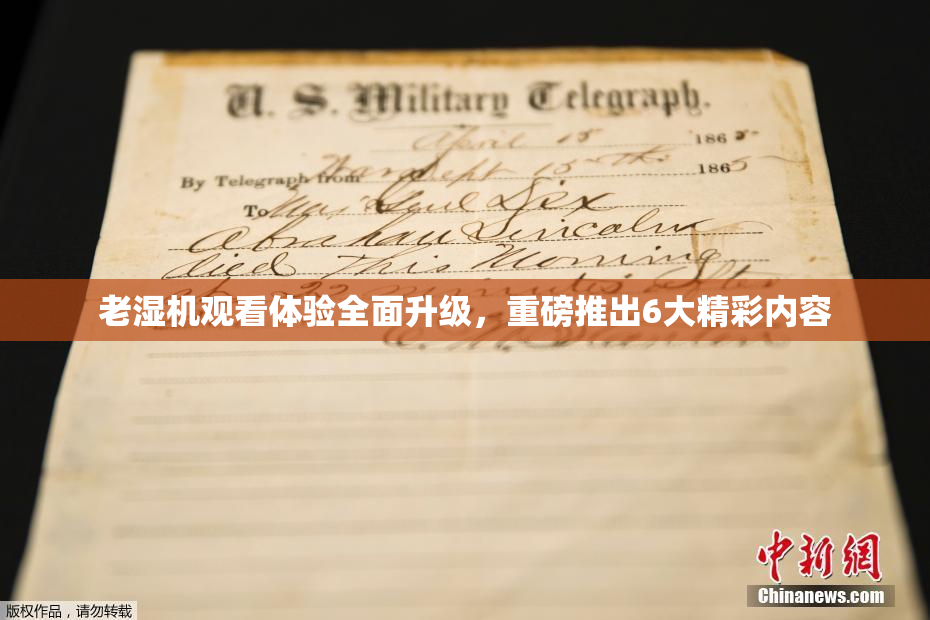 U. S. Military Telegraph.
April 15 1865
By Telegraph from War Dept 15th 1865
To Maj Genl Dix
Abraham Lincoln
died This Morning
at 22 minutes after
老湿机观看体验全面升级，重磅推出6大精彩内容
E. M. Stanton
中新网
Chinanews.com
版权作品，请勿转载